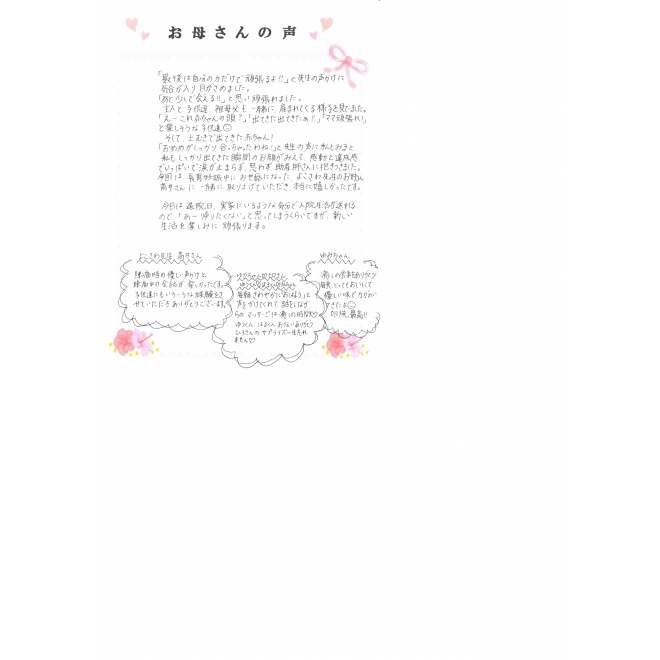 お母さんの声
「最後は自分の力だけで頑張るよ!!」と先生の声かけに
気合が入り目がさめました。
「あと少しで会える!!」と思い頑張れました。
主人と子供達、祖父母も一緒に産まれてくる様子を見てました。
「えーこれ赤ちゃんの頭?」「出てきた出てきたぁ!!」「ママ頑張れ!」
と楽しそうな子供達☺
そして、上むきで出てきた赤ちゃん!
「おめめがしっかり合っちゃったわね」と先生の声に私もみると
私もしっかり出てきた瞬間のお顔がみえて、感動と達成感
でいっぱいで涙が止まらず、思わず助産師さんに抱きつきました。
今回は長男妊娠中にお世話になった、よこさわ先生のお姉さん
高井さんに一緒に取り上げていただき本当に嬉しかったです。
今日は退院日、実家にいるような気分で入院生活が送れる
ので「あー帰りたくない」と思ってしまうくらいですが、新しい
生活を楽しみに頑張ります。
よこさわ先生 高井さん
陣痛時の優しい声かけと
陣痛中の会話が楽しかったです。
子供達にもいろーろな経験をさ
せていただきありがとうございます。
毎朝さわやかに「おはよう」と
声をかけてくれて、話をしなが
らのマッサージは癒しの時間♡
サプライズ一生忘れ
ません♡
ゆみちゃん
癒しの食事をありがとう
毎食とってもおいしくて
優しい味で力がわ
きたよ☺
最高!!